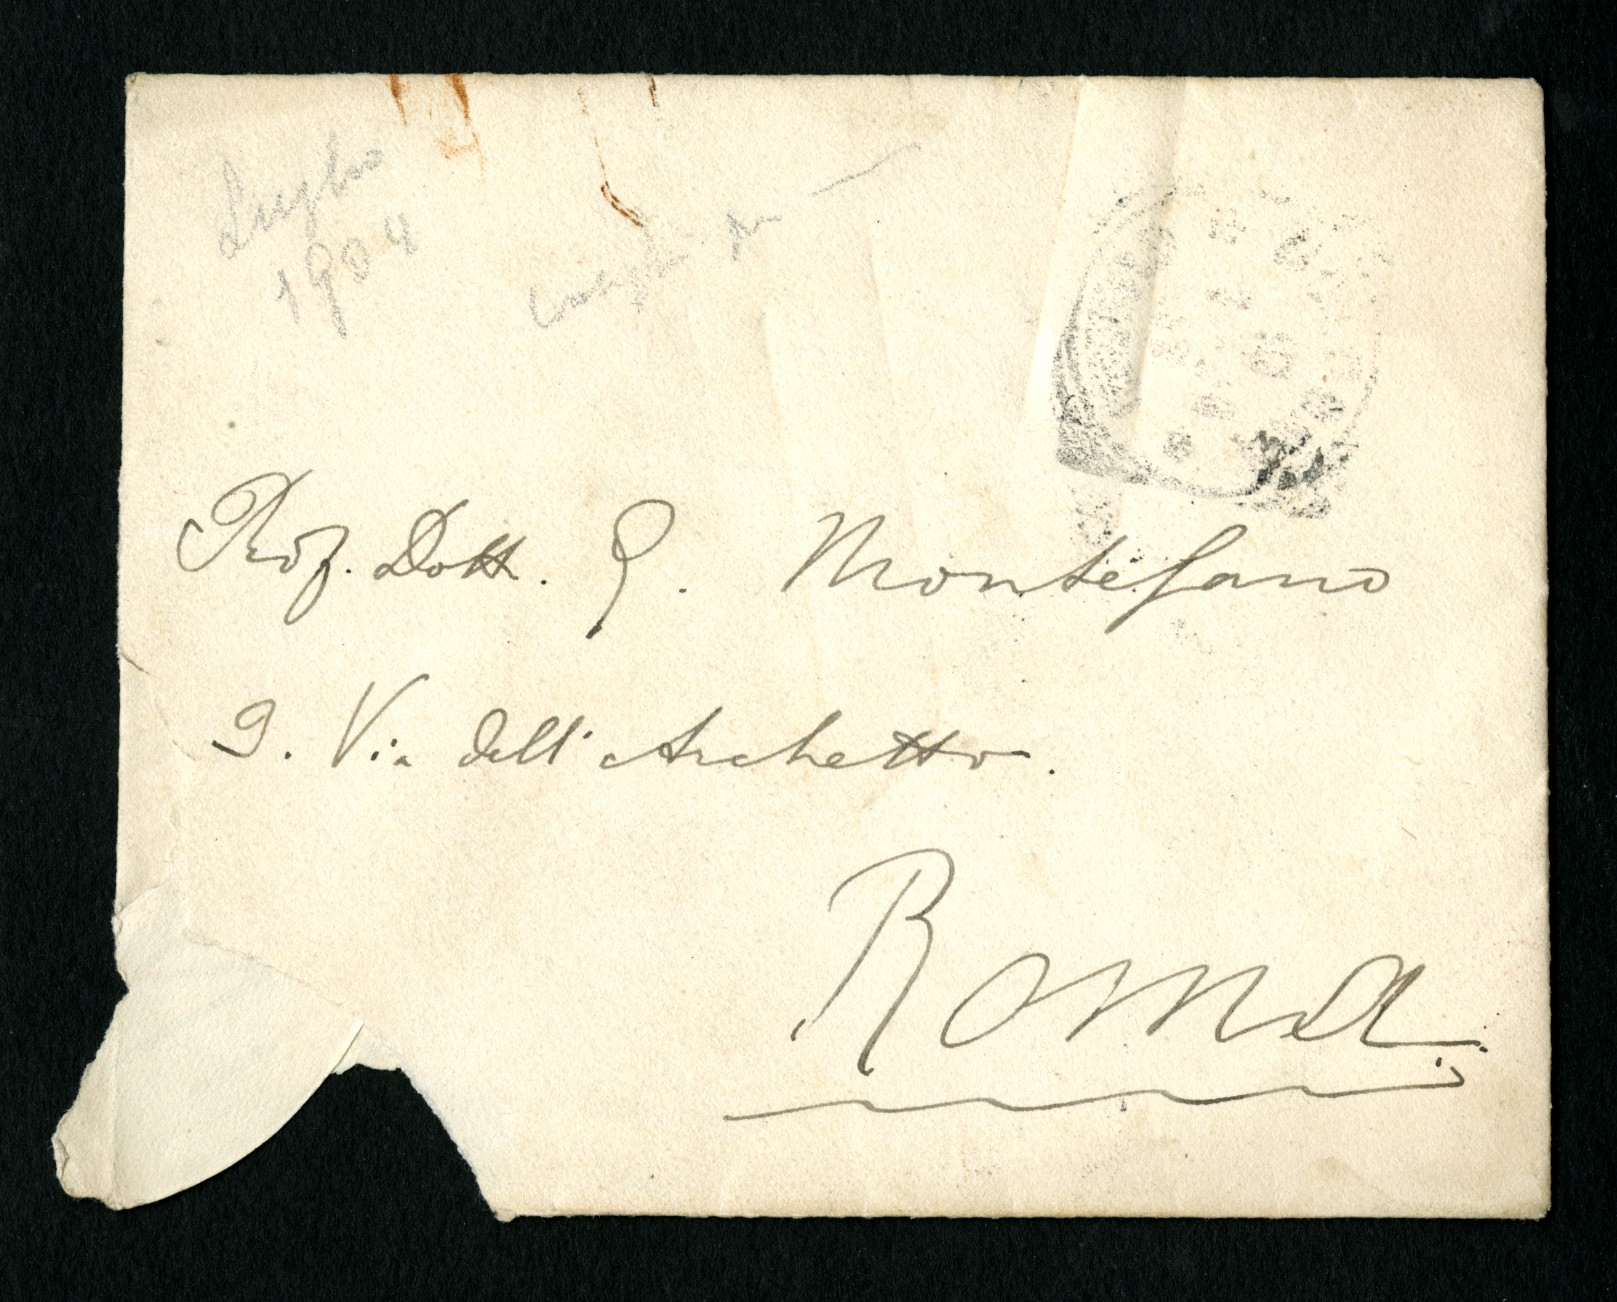 Luglio
1904
Prof. Dott. G. Montesano
9. Via dell'Archetto.
Roma.